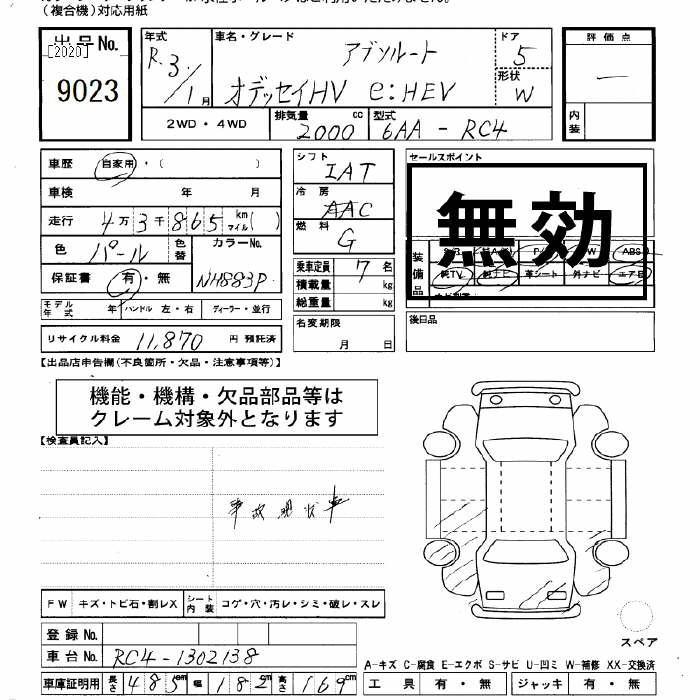 (複合機)対応用紙
出品No.
[2020]
9023
年式 R.3/1月
車名・グレード アブソルート
オデッセイHV e:HEV
ドア 5
形状 W
評価点 —
内装
2WD・4WD
排気量 2000 cc
型式 6AA-RC4
車歴 自家用・( )
車検 年 月
走行 4万3千865 km マイル( )
色 パール 色替 カラーNo. NH883P
保証書 有・無
モデル年式 年 ハンドル 左・右 ディーラー・並行
リサイクル料金 11,870 円 預託済
シフト IAT
冷房 AAC
燃料 G
乗車定員 7 名
積載量 kg
総重量 kg
名変期限
月 日
セールスポイント
無効
装備品
S/R P/ W ABS
純TV 純ナビ 革シート 外ナビ エアB
後日品
【出品店申告欄(不良箇所・欠品・注意事項等)】
機能・機構・欠品部品等は
クレーム対象外となります
【検査員記入】
事故現状車
FW キズ・トビ石・割レX シート内装 コゲ・穴・汚レ・シミ・破レ・スレ
登録No.
車台No. RC4-1302138
車庫証明用 長さ 485cm 幅 182cm 高さ 169cm
スペア
A-キズ C-腐食 E-エクボ S-サビ U-凹ミ W-補修 XX-交換済
工具 有・無 ジャッキ 有・無